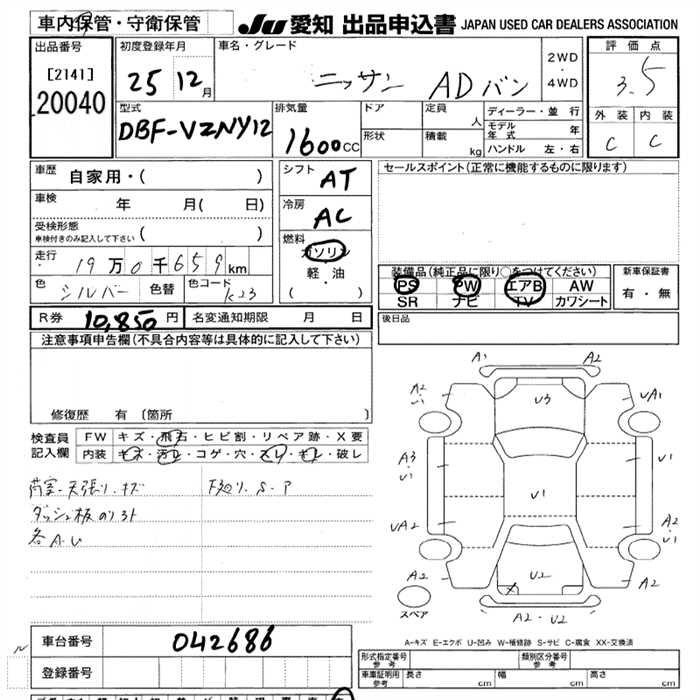 車内保管・守衛保管 JU 愛知 出品申込書 JAPAN USED CAR DEALERS ASSOCIATION
出品番号 初度登録年月 車名・グレード 2WD 評価点
[2141] 25 12月 ニッサン ADバン 4WD 3.5
20040 型式 排気量 ドア 定員 人 ディーラー・並行 外装 内装
DBF-VZNY12 1600cc 形状 積載 kg モデル年式 年 C C
ハンドル 左・右
車歴 自家用・( ) シフト AT セールスポイント(正常に機能するものに限ります)
車検 年 月( 日) 冷房 AC
受検形態 ( )
車検付きのみ記入して下さい
燃料 ガソリン
走行 19万0千659km 軽・油 装備品(純正品に限り○をつけてください) 新車保証書
色 シルバー 色替 色コード K23 ( ・ ) PS PW エアB AW 有・無
SR ナビ TV カワシート
R券 10,850円 名変通知期限 月 日 後日品
注意事項申告欄(不具合内容等は具体的に記入して下さい)
A1 A2
A2 U1 U3 UA1
修復歴 有 〔箇所 〕
検査員記入欄 FW キズ・飛石・ヒビ割・リペア跡・X要
内装 キズ・汚レ・コゲ・穴・スレ・キレ・破し
A3 U1 U1
荷室・天張り・キズ 下廻り・S・P U1
ダッシュ板のり3ト UA2 A2 U1
各A.U
A2 U2 A2
スペア A2・U2
車台番号 042686
A-キズ E-エクボ U-凹み W-補修跡 S-サビ C-腐食 XX-交換済
登録番号 形式指定番号 参考 類別区分番号 参考
車庫証明用 参考 長さ cm 幅 cm 高さ cm